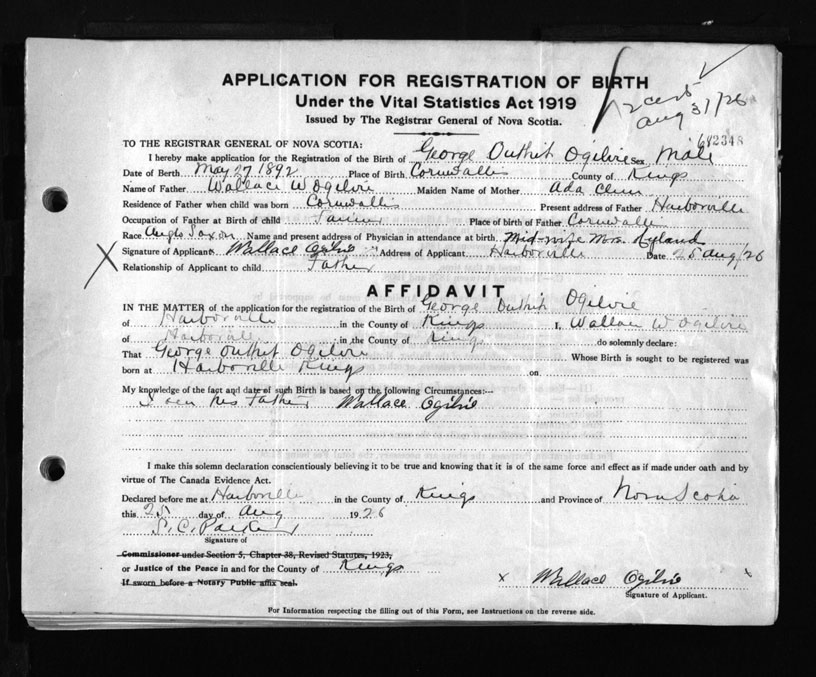 APPLICATION FOR REGISTRATION OF BIRTH
Under the Vital Statistics Act 1919
Issued by The Registrar General of Nova Scotia.
2 cert
Aug 31/26
TO THE REGISTRAR GENERAL OF NOVA SCOTIA:
I hereby make application for the Registration of the Birth of George Outhit Ogilvie Sex Male
Date of Birth May 27 1892 Place of Birth Cornwallis County of Kings
Name of Father Wallace W Ogilvie Maiden Name of Mother Ada
Residence of Father when child was born Cornwallis Present address of Father Harborville
Occupation of Father at Birth of child Place of birth of Father Cornwallis
Race Anglo Saxon Name and present address of Physician in attendance at birth Mid-wife Mrs.
Signature of Applicant Wallace Ogilvie Address of Applicant Harborville Date 25 Aug/26
Relationship of Applicant to child Father
AFFIDAVIT
IN THE MATTER of the application for the registration of the Birth of George Outhit Ogilvie
of Harborville in the County of Kings I, Wallace W Ogilvie
of Harborville in the County of Kings do solemnly declare:
That George Outhit Ogilvie Whose Birth is sought to be registered was
born at Harborville Kings on
My knowledge of the fact and date of such Birth is based on the following Circumstances:—
his Father Wallace Ogilvie
I make this solemn declaration conscientiously believing it to be true and knowing that it is of the same force and effect as if made under oath and by
virtue of The Canada Evidence Act.
Declared before me at Harborville in the County of Kings and Province of Nova Scotia
this 25 day of Aug 1926
S. C. Parker
Signature of
Commissioner under Section 5, Chapter 38, Revised Statutes, 1923,
or Justice of the Peace in and for the County of Kings
If sworn before a Notary Public affix seal.
x Wallace Ogilvie x
Signature of Applicant.
For Information respecting the filling out of this Form, see Instructions on the reverse side.